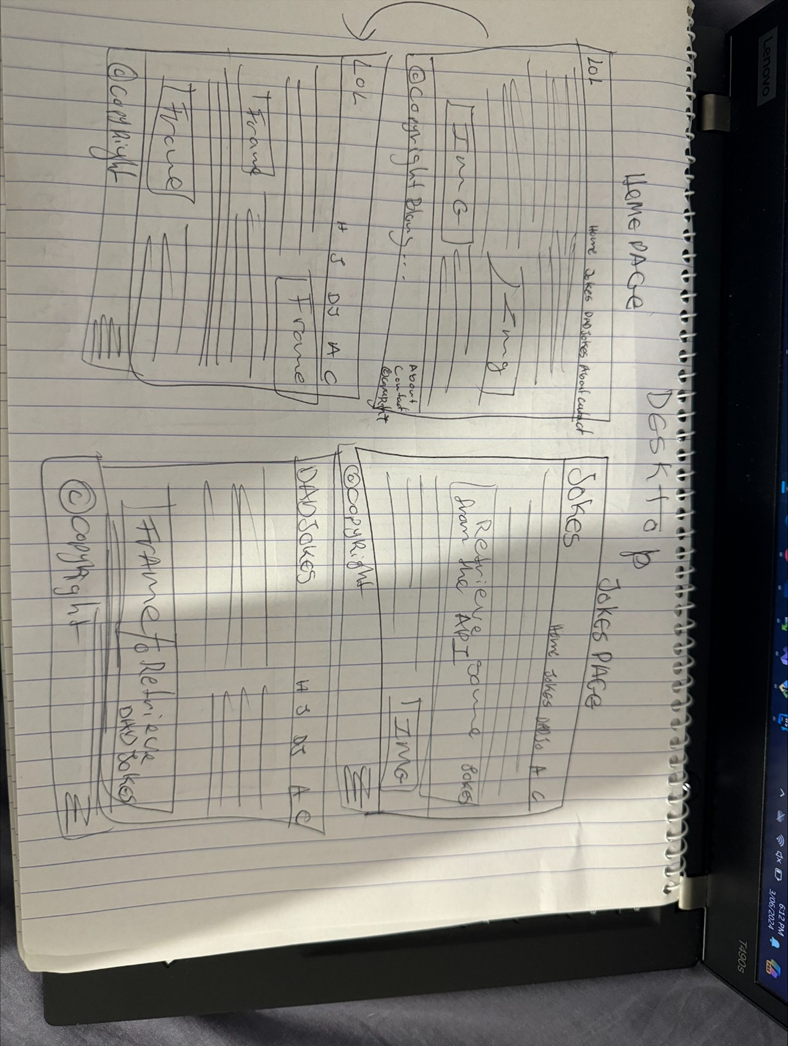 DESKTOP
HOME PAGE
LOL
Home Jokes DADJokes About Contact
Img
IMG
©Copyright Blany...
About
Contact
Copyright
LOL
H J DJ A C
Frame
Frame
Frame
©Copyright
JOKES PAGE
Jokes
Home Jokes DADJo A C
Retrieve some Jokes
from the API
IMG
©Copyright
DADJOKES
H J DJ A C
FRAME to Retrieve
DADJOKES
©Copyright
Lenovo
T490s
6:12 PM
3/06/2024